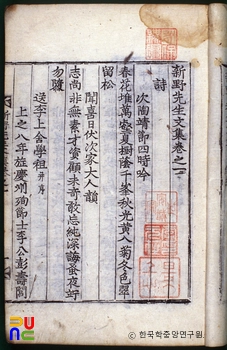 新野先生文集卷之一
詩
次陶靖節四時吟
春花堆萬壑夏樹蔭千峯秋光黃入菊冬色翠
留松
聞喜日伏次家大人韻
志尚非無素才資顧未奇敢忘純深誨蚤夜竚
勿騣
送李上舍學祖 并序
上之八年雄慶州殉節士李公彭壽閭
한국학중앙연구원